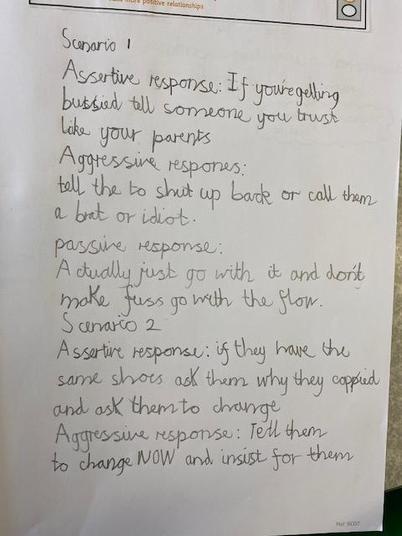 more positive relationships
Scenario 1
Assertive response: If you're getting
bussied tell someone you trust
like your parents
Aggressive respones:
tell the to shut up back or call them
a brat or idiot.
passive response:
Actually just go with it and don't
make fuss go with the flow.
Scenario 2
Assertive response: if they have the
same shoes ask them why they coppied
and ask them to change
Aggressive response: Tell them
to change NOW and insist for them